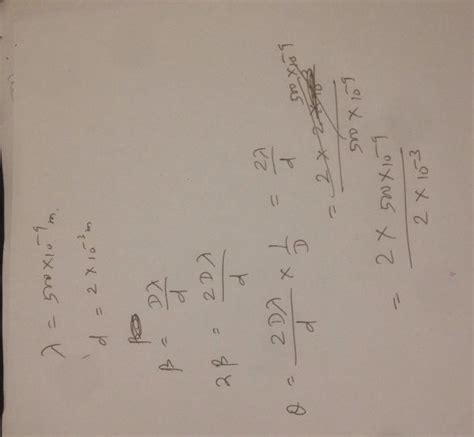 λ = 500 × 10⁻⁹ m.
d = 2 × 10⁻³ m
β = Dλ/d
2β = 2Dλ/d
θ = 2Dλ/d × 1/D = 2λ/d
= 2 × 500 × 10⁻⁹ / 500 × 10⁻⁹
= 2 × 500 × 10⁻⁹ / 2 × 10⁻³